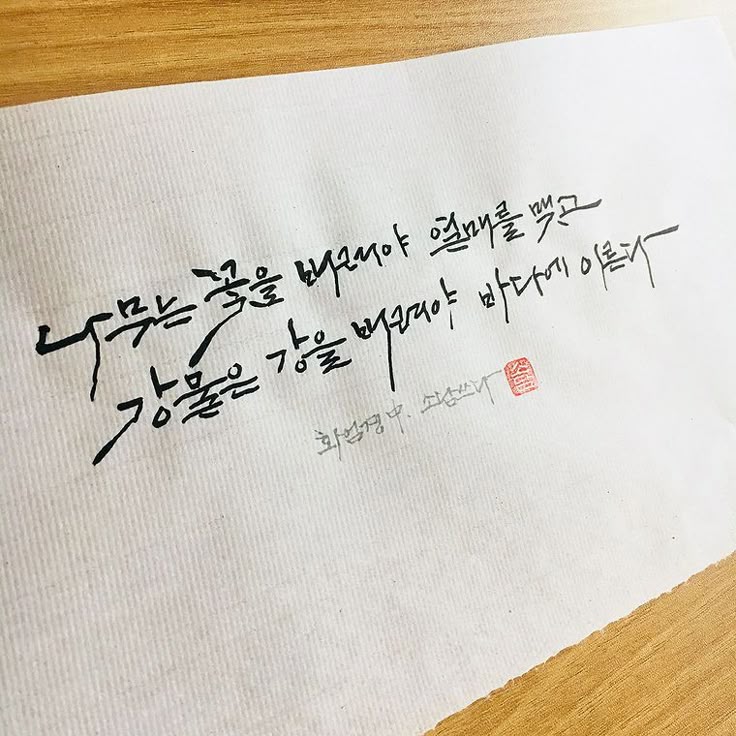 나무는 꽃을 버려야 열매를 맺고
강물은 강을 버려야 바다에 이른다
화엄경 中. 소남쓰다